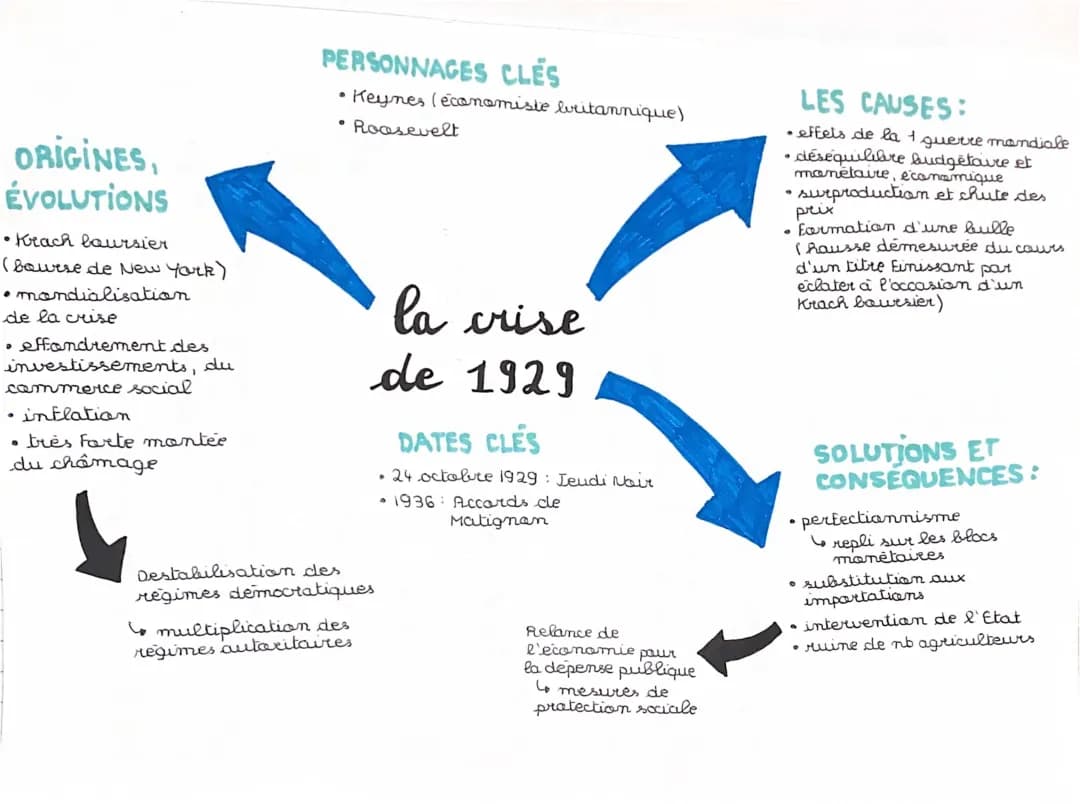 PERSONNAGES CLÉS
• Keynes (économiste britannique)
• Roosevelt
ORIGINES,
ÉVOLUTIONS
• Krach boursier
(bourse de New York)
• mondialisation
de la crise
• effondrement des
investissements, du
commerce social
• inflation
• très forte montée
du chômage
Destabilisation des
régimes démocratiques
↳ multiplication des
régimes autoritaires
la crise
de 1929
DATES CLÉS
• 24 octobre 1929 : Jeudi Noir
• 1936 : Accords de
Matignon
LES CAUSES :
• effets de la 1 guerre mondiale
• déséquilibre budgétaire et
monétaire, économique
• surproduction et chute des
prix
• Formation d'une bulle
(hausse démesurée du cours
d'un titre finissant par
éclater à l'occasion d'un
Krach boursier)
SOLUTIONS ET
CONSÉQUENCES :
• perfectionnisme
↳ repli sur les blocs
monétaires
• substitution aux
importations
• intervention de l'Etat
• ruine de nb agriculteurs
Relance de
l'économie pour
la dépense publique
↳ mesures de
protection sociale